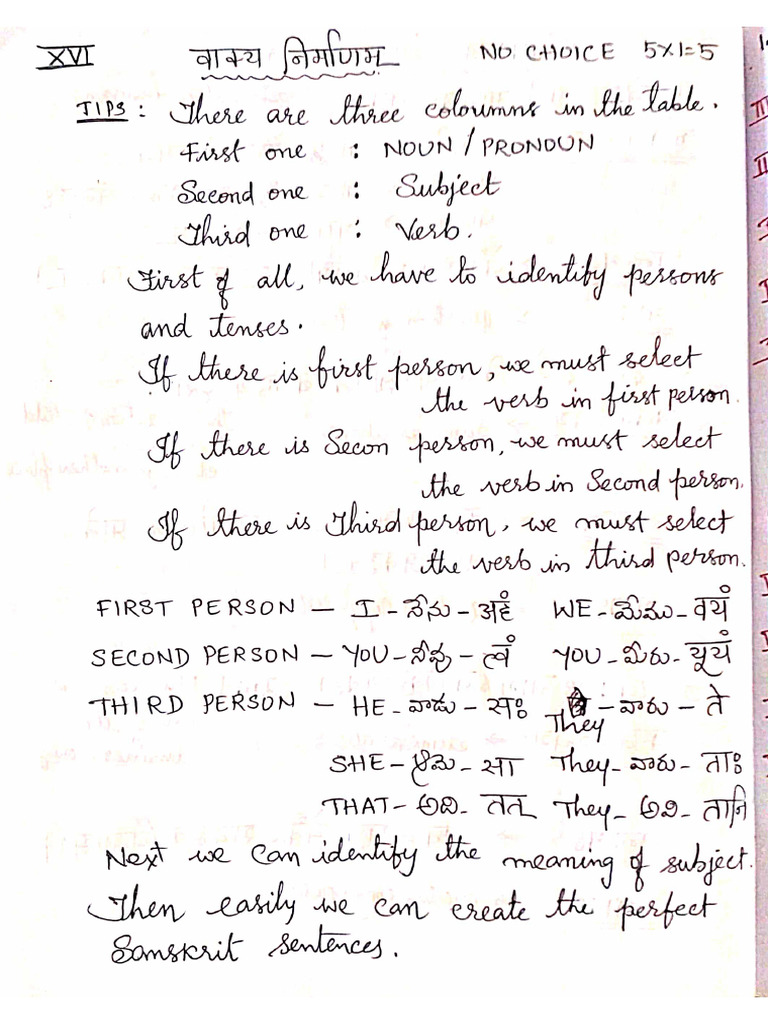 XVI वाक्य निर्माणम NO. CHOICE 5x1=5
TIPS : There are three coloumns in the table.
First one : NOUN / PRONOUN
Second one : Subject
Third one : Verb.
First of all, we have to identify persons
and tenses.
If there is first person, we must select
the verb in first person.
If there is Secon person, we must select
the verb in Second person.
If there is Third person, we must select
the verb in third person.
FIRST PERSON – I - నేను - अहं WE - మేము - वयं
SECOND PERSON – YOU - నీవు - त्वं YOU - మీరు - यूयं
THIRD PERSON – HE - వాడు - सः They - వారు - ते
SHE - ఆమె - सा They - వారు - ताः
THAT - అది - तत् They - అవి - तानि
Next we can identify the meaning of subject.
Then easily we can create the perfect
Samskrit sentences.